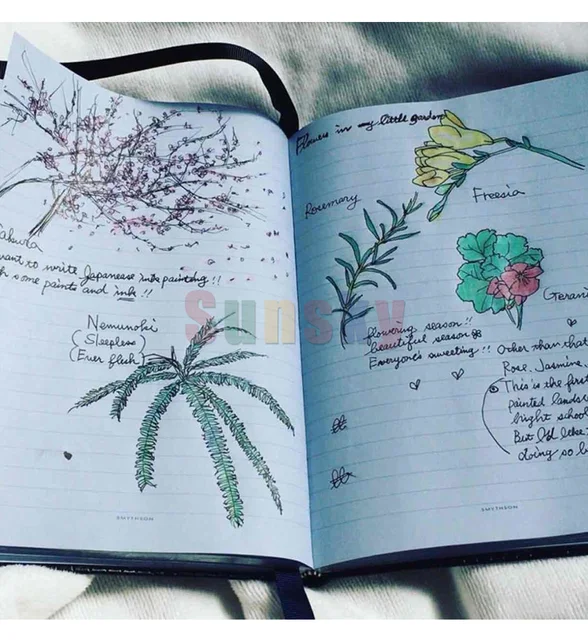 Sakura
want to write Japanease ink painting!!
some paints and ink!!
Nemunoki
(Sleepless)
(Ever flush)
SMYTHSON
Flowers in my little garden
Freesia
Rosemary
Gerani
flowering season!!
beautiful season
Everyone's sweeting!! Other than that
Rose, Jasmine,
This is the firs
painted landsc
hight school
But I'd like
doing so b
SMYTHSON
Sunsky